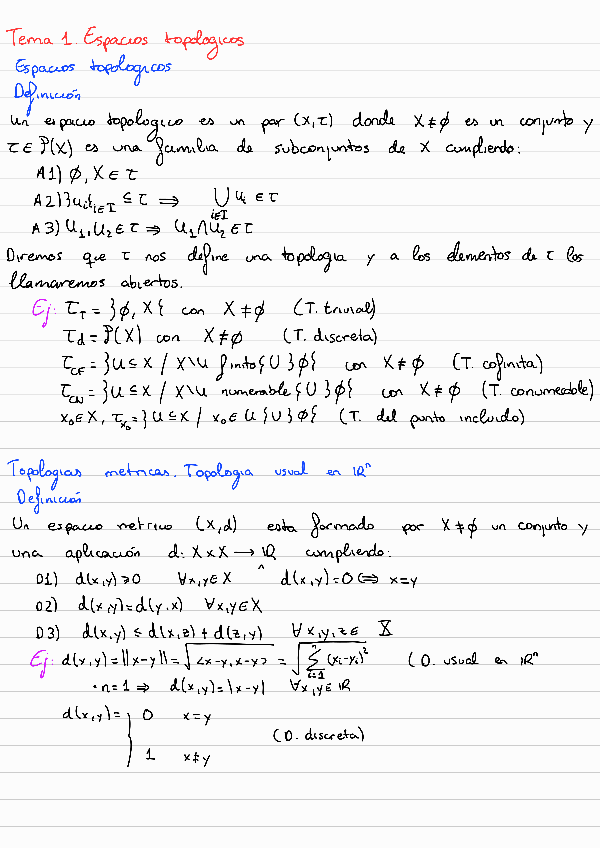 Tema 1. Espacios topologicos
Espacios topologicos
Definición
Un espacio topologico es un par (X,τ) donde X≠∅ es un conjunto y
τ∈P(X) es una familia de subconjuntos de X cumpliendo:
A1) ∅, X ∈ τ
A2) {Ui}i∈I ⊆ τ ⇒ ⋃i∈I Ui ∈ τ
A3) U1, U2 ∈ τ ⇒ U1∩U2 ∈ τ
Diremos que τ nos define una topologia y a los elementos de τ los
llamaremos abiertos.
Ej: τT = {∅, X} con X≠∅ (T. trivial)
τd = P(X) con X≠∅ (T. discreta)
τCF = {U⊆X / X\U finito} ∪ {∅} con X≠∅ (T. cofinita)
τCN = {U⊆X / X\U numerable} ∪ {∅} con X≠∅ (T. conumerable)
x0∈X, τx0 = {U⊆X / x0∈U} ∪ {∅} (T. del punto incluido)
Topologias metricas. Topologia usual en ℝⁿ
Definición
Un espacio metrico (X,d) esta formado por X≠∅ un conjunto y
una aplicación d: X×X → ℝ cumpliendo:
D1) d(x,y)≥0 ∀x,y∈X ^ d(x,y)=0 ⇔ x=y
D2) d(x,y)=d(y,x) ∀x,y∈X
D3) d(x,y) ≤ d(x,z)+d(z,y) ∀x,y,z∈ X
Ej: d(x,y)=||x-y||=√<x-y,x-y> = √∑ⁿi=1 (xi-yi)² (D. usual en ℝⁿ
· n=1 ⇒ d(x,y)=|x-y| ∀x,y∈ℝ
d(x,y)= { 0 x=y
(D. discreta)
1 x≠y